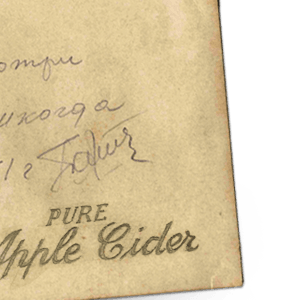 отри
икогда
1 г
PURE
Apple Cider